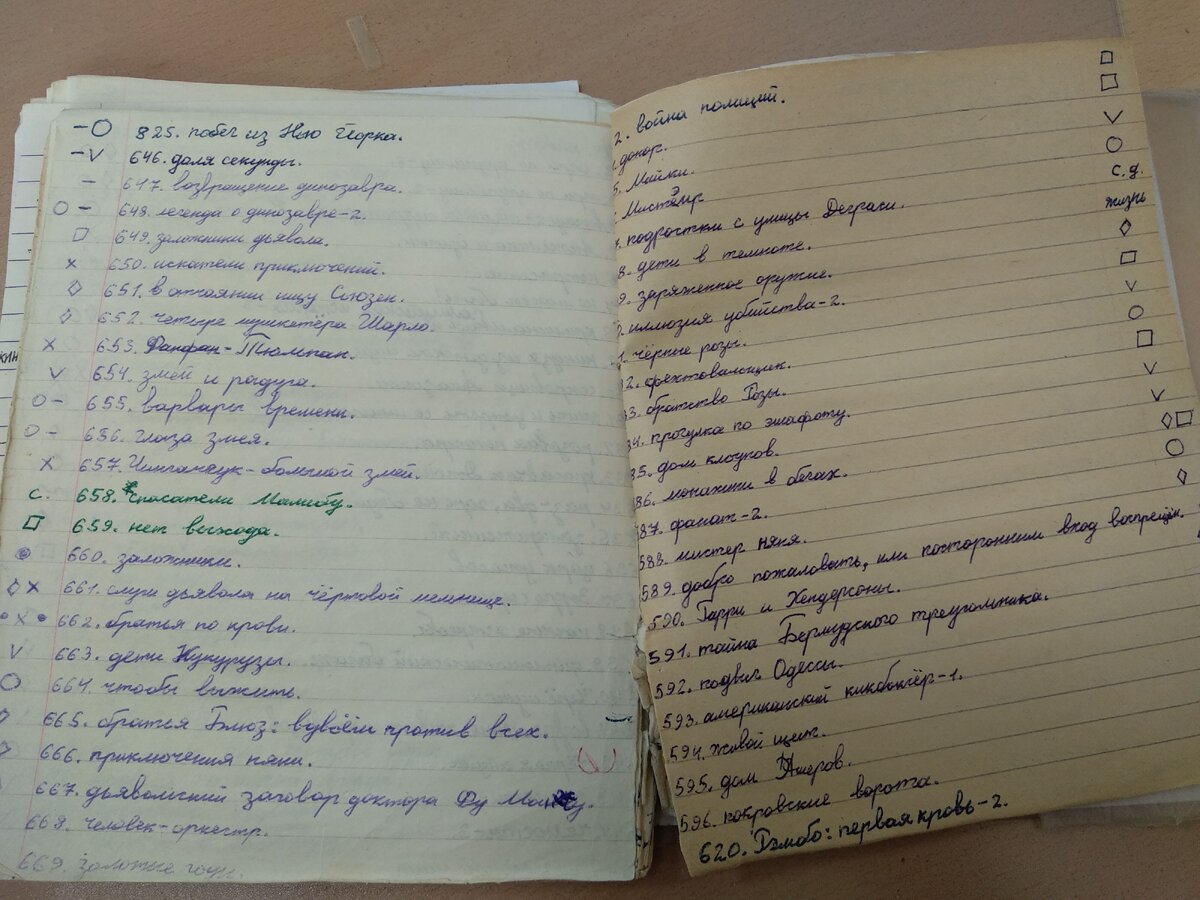 825. побег из Нью Йорка.
646. доля секунды.
647. возвращение динозавра.
648. легенда о динозавре-2.
649. заложники дьявола.
650. искатели приключений.
651. в отчаянии ищу Сьюзен.
652. четыре мушкетёра Шарло
653. Фанфан-Тюльпан.
654. змей и радуга.
655. варвары времени.
656. глаза змея.
657. Чингачгук-большой змей.
С. 658. спасатели Малибу.
659. нет выхода.
660. заложники.
661. слуги дьявола на чёртовой мельнице.
662. братья по крови.
663. дети Кукурузы.
664. чтобы выжить.
665. братья Блюз: вдвоём против всех.
666. приключения няни.
667. дьявольский заговор доктора Фу Манчу.
668. человек-оркестр.
669. золотые
2. война полиций.
донор.
5. Майки.
Мистэир
7. подростки с улицы Деграси. С.д.
8. дети в темноте. жизнь
9. заряженное оружие.
иллюзия убийства-2.
1. чёрные розы.
82. фехтовальщик.
83. братство Розы.
84. прогулка по эшафоту.
85. дом клоунов.
86. монашки в бегах.
587. фанат-2.
588. мистер няня.
589. добро пожаловать, или посторонним вход воспрещён.
590. Гарри и Хендерсоны.
591. тайна Бермудского треугольника.
592. подвиг Одессы.
593. американский кикбоксёр-1.
594. живой щит.
595. дом Ашеров.
596. покровские ворота.
620. Рэмбо: первая кровь-2.